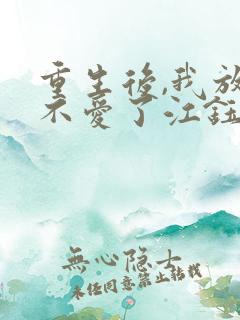 重生後,我放
不愛了江鈺
無心隐士
未经同意禁止转载